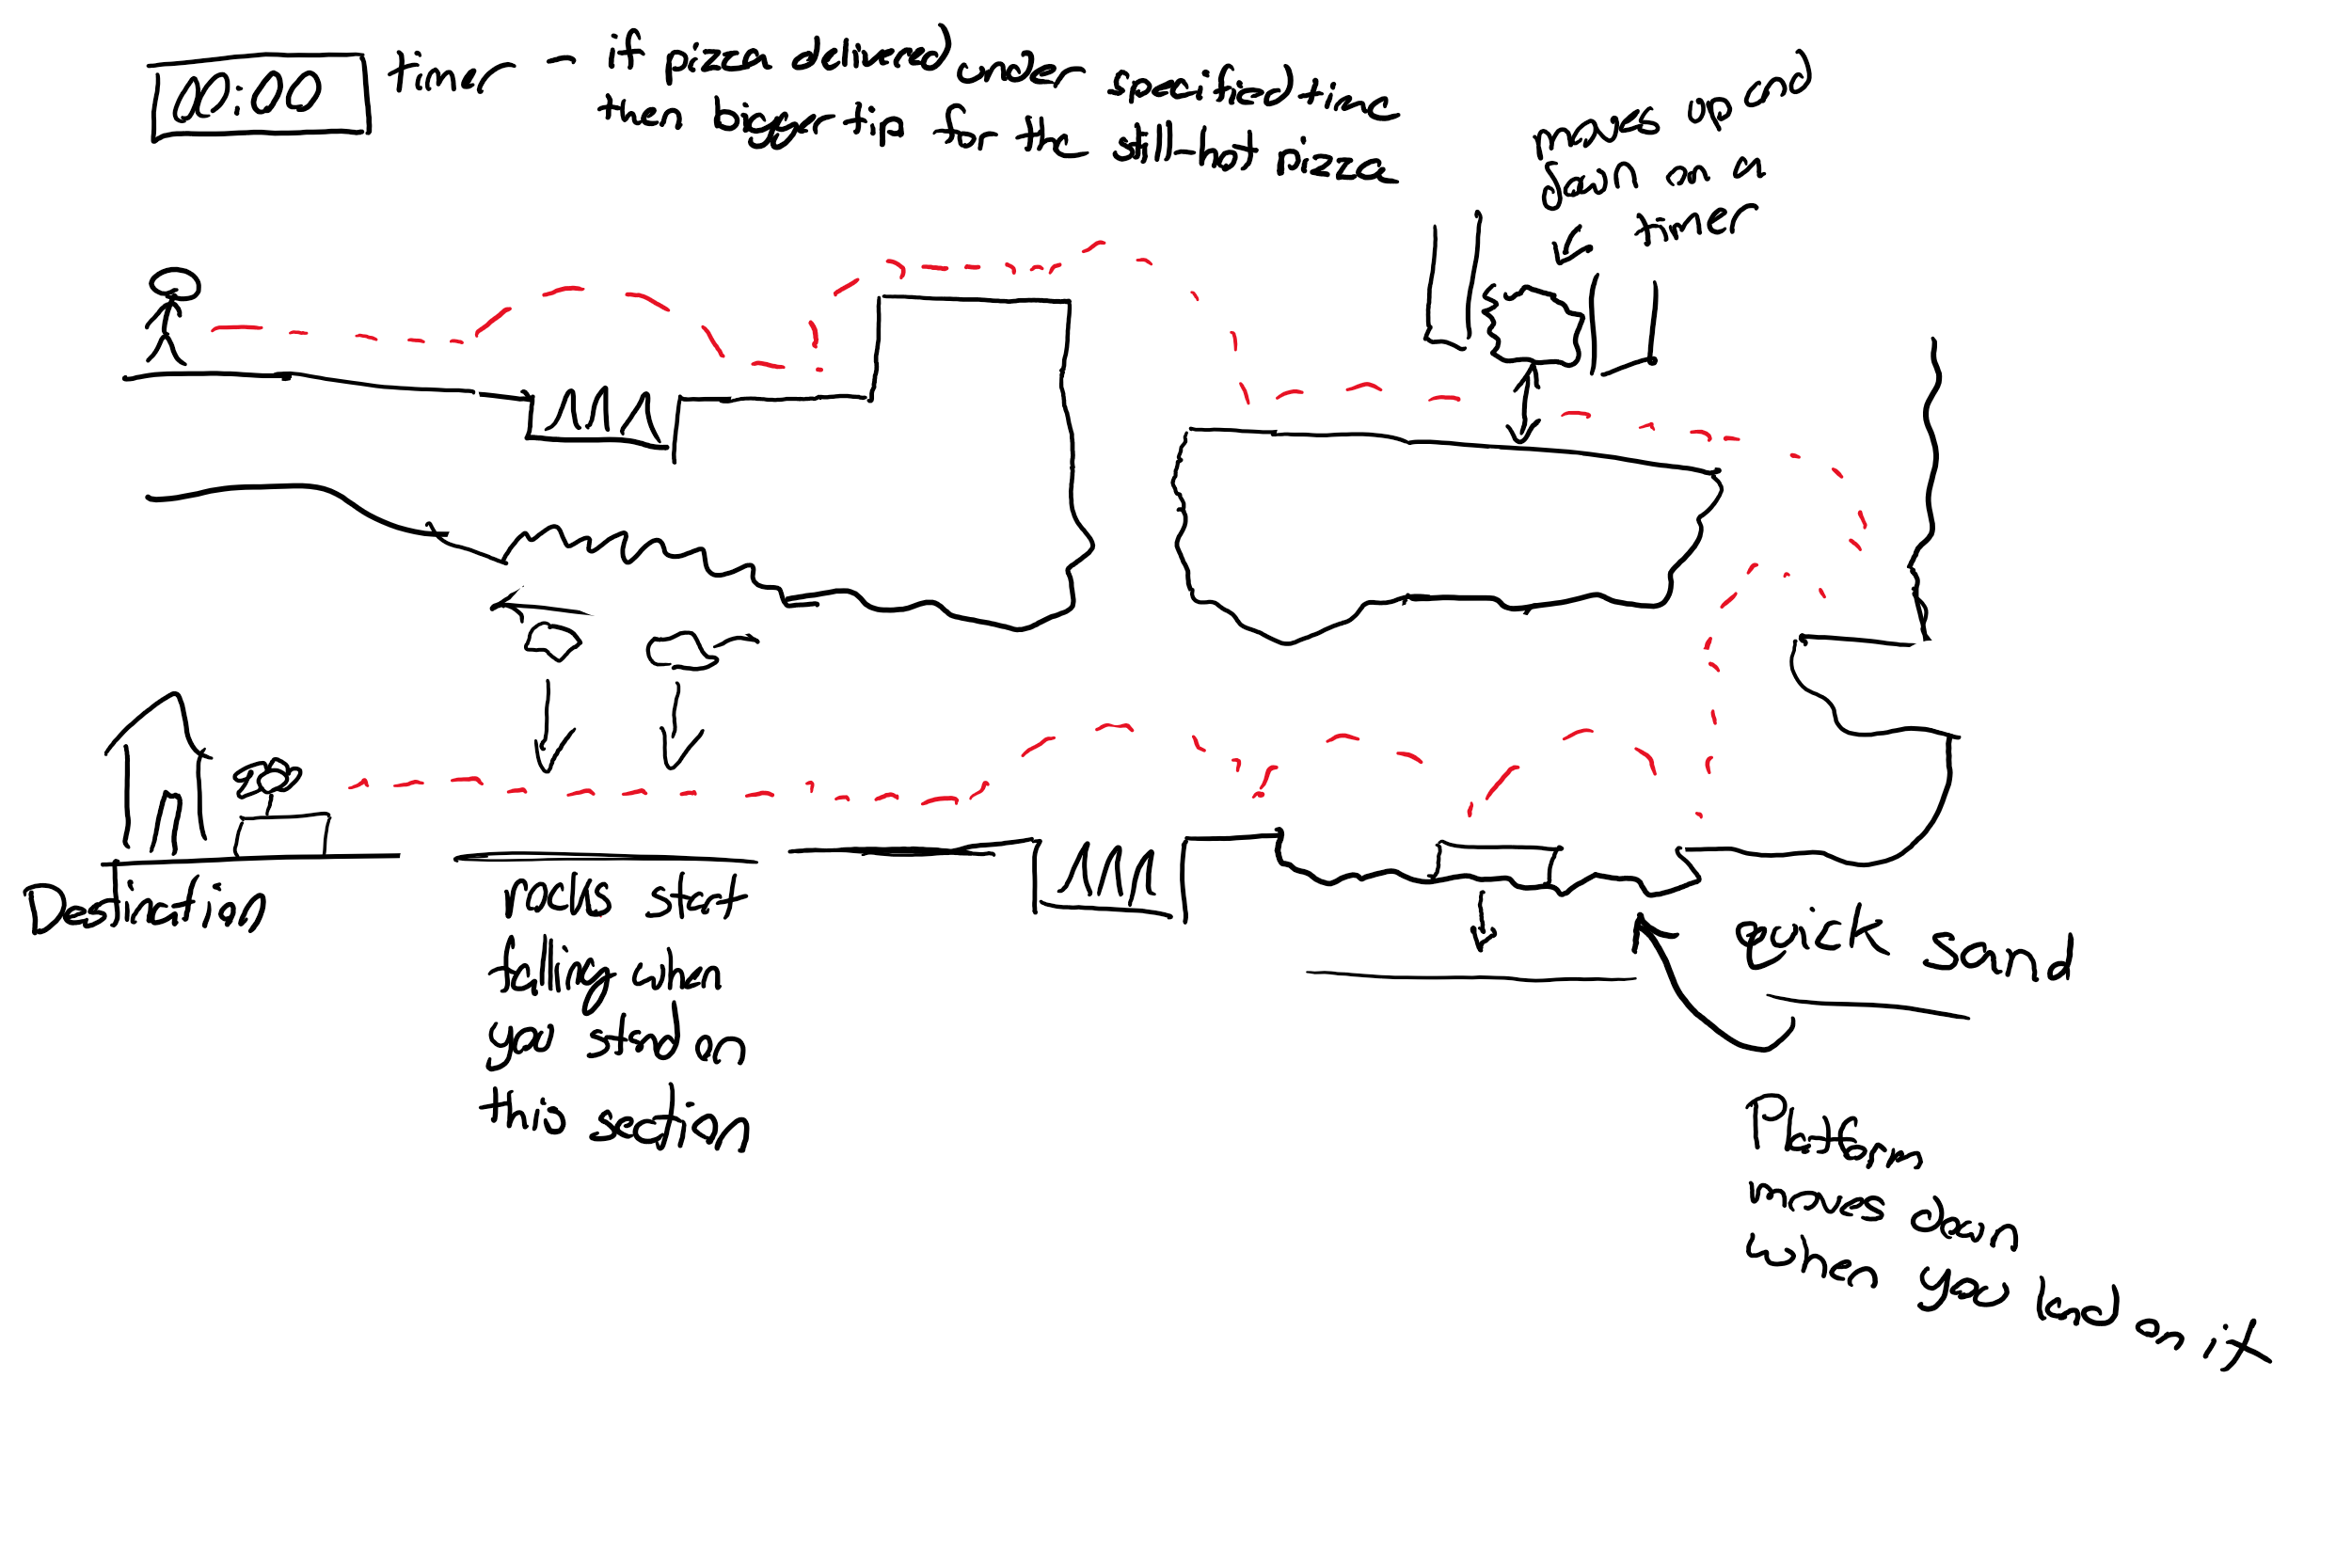 00:00 timer - if pizza delivered under specified time
then bigger tip for the still-hot pizza
moves up and
down on a
timer
Desination
rocks start
falling when
you stand on
this section
quick sand
Platform
moves down
when you land on it